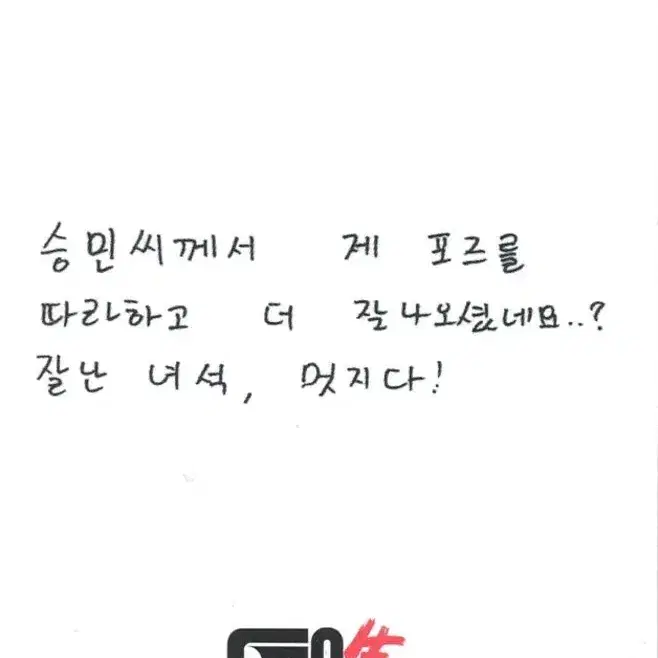 승민씨께서 제 포즈를
따라하고 더 잘나오셨네요..?
잘난 녀석, 멋지다!